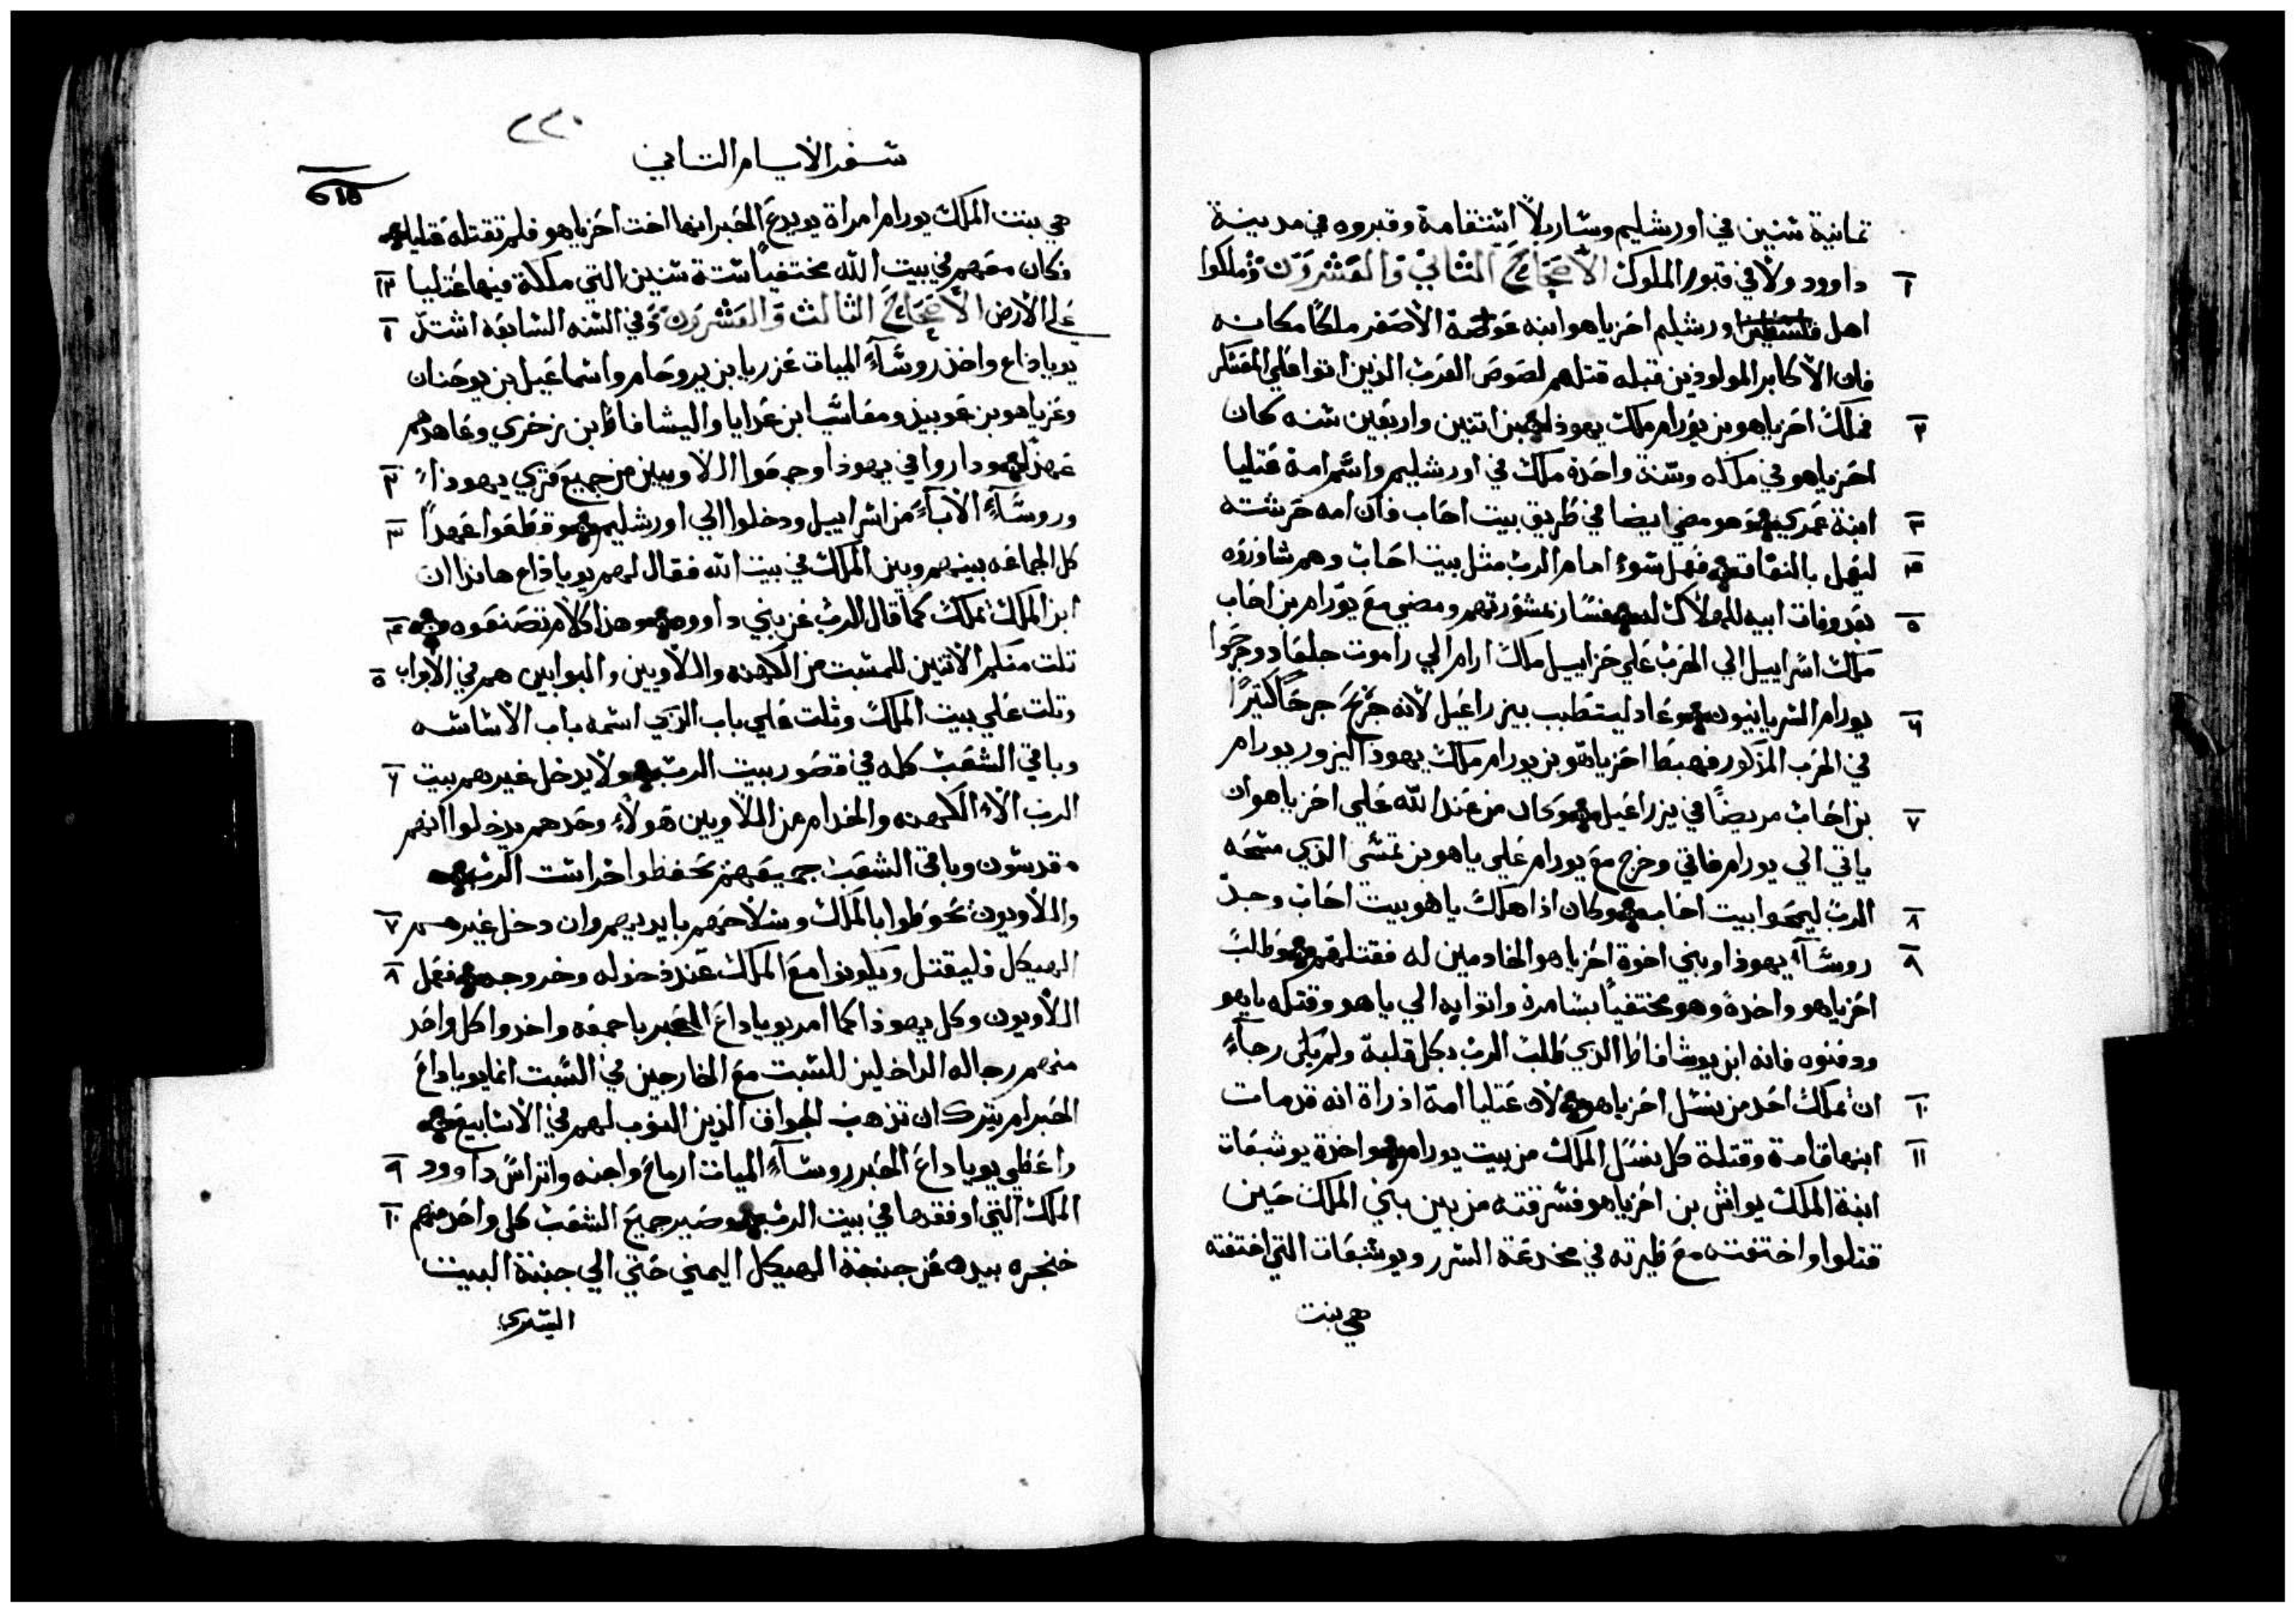 ثمانية شنين في اورشليم وشار بلاً اشتقامة وقبروه في مدينة
١ داوود ولا في قبور الملوك الأصحاح الثاني والعشرون وملكوا
اهل اورشليم احزياهو ابنه عوضة الأصغر ملكاً مكانه
فان الأكابر المولودين قبله قتلهم لصوص العرب الذين اتوا علي المعسكر
٢ فملك احزياهو بن يورام ملك يهوذا ابن اتنين واربعين شنه كان
احزياهو في ملكه وسنة واحدة ملك في اورشليم واسم امة عتليا
٣ ابنة عمري وهو مضي ايضا في طريق بيت احاب فان امه حرشته
٤ ليعمل بالنفاق فعمل شوء امام الرب مثل بيت احاب وهم شاوروه
٥ بعد وفات ابيه للهلاك فسار بمشورتهم ومضي مع يورام بن احاب
ملك اشراييل الي الحرب علي حزاييل ملك ارام الي راموت جلعاد وجرحوا
٦ يورام السريانيون وعاد ليتطبب بيزراعيل لأنه جرح جرحاً كتيراً
في الحرب المذكور فهبط احزياهو بن يورام ملك يهوذا ليزور يورام
٧ بن احاب مريضاً في يزراعيل وكان من عند الله علي احزياهو ان
ياتي الي يورام فاتي وخرج مع يورام علي ياهو بن نمشى الذي مسحه
٨ الرب ليمحوا بيت احاب وكان اذ اهلك ياهو بيت احاب وجد
٩ روشآء يهوذا وبني اخوة احزياهو الخادمين له فقتلهم وطلب
احزياهو واخذة وهو مختفياً بشامرة واتوا به الي ياهو وقتله ياهو
ودفنوه فانه ابن يوشافاط الذي طلب الرب بكل قلبة ولم يكن رجآء
١٠ ان يملك احد من نسل احزياهو لان عتليا امة اذ راة انه قد مات
١١ ابنها قامة وقتلة كل نسل الملك من بيت يورام واخذة يوشبعات
ابنة الملك يواش بن احزياهو فسرقته من بين بني الملك حين
قتلوا واختفته مع ظيرته في مخدعة السرر ويوشبعات التي اختفته
هي بنت
٢٢٠
شفر الأيام التاني
هي بنت الملك يورام امراة يويدع الحبر انها اخت احزياهو فلم تقتله عتليا
١٢ وكان معهم في بيت الله مختفياً ستة شنين التي ملكة فيها عتليا
١ علي الأرض الأصحاح الثالث والعشرون وفي السنه السابعه اشتد
يوياذاع واخذ روشآء الميات عزريا بن يروحام واسماعيل بن يوحنان
وعزياهو بن عوبيد ومعاسيا ابن عدايا واليشافاط ابن زخري وعاهدهم
٢ عهدا وداروا في يهوذا وجمعوا اللاويين من جميع قري يهوذا
٣ وروشآء الأبآء من اشراييل ودخلوا الي اورشليم وقطعوا عهداً
كل الجماعه بينهم وبين الملك في بيت الله فقال لهم يوياذاع هاهوذا ان
٤ ابن الملك يملك كما قال الرب عن بني داوود وهذا كلام تصنعوه
٥ تلت منكم الاتين للسبت من الكهنه واللاويين والبوابين هم في الأبواب
وتلت علي بيت الملك وتلت علي باب الذي اسمه باب الأساسه
٦ وباقي الشعب كله في قصور بيت الرب ولا يدخل غيرهم بيت
الرب الاء الكهنه والخدام من اللاويين هولاء وحدهم يدخلوا انهم
مقدسون وباقي الشعب جميعهم تحفظوا حراست الرب
٧ واللاويون تحوطوا بالملك وسلاحهم بايديهم وان دخل غيرهم
٨ الهيكل فليقتل ويكونوا مع الملك عند دخوله وخروجه ففعل
اللاويون وكل يهوذا كما امر يوياداع الحبر باجمعه واخدوا كل واحد
منهم رجاله الداخلين للسبت مع الخارجين في السبت انما يوياداع
الحبر لم يترك ان تذهب الجواق الذين النوب لهم في الأسابيع
٩ واعطي يوياداع الحبر روسآء الميات ارماح واجنه واتراس داوود
١٠ الملك التي اوفقدها في بيت الرب وصير جميع الشعب كل واحد منهم
خنجره بيده عن جنبة الهيكل اليمني حتي الي جنبة البيت
اليسري